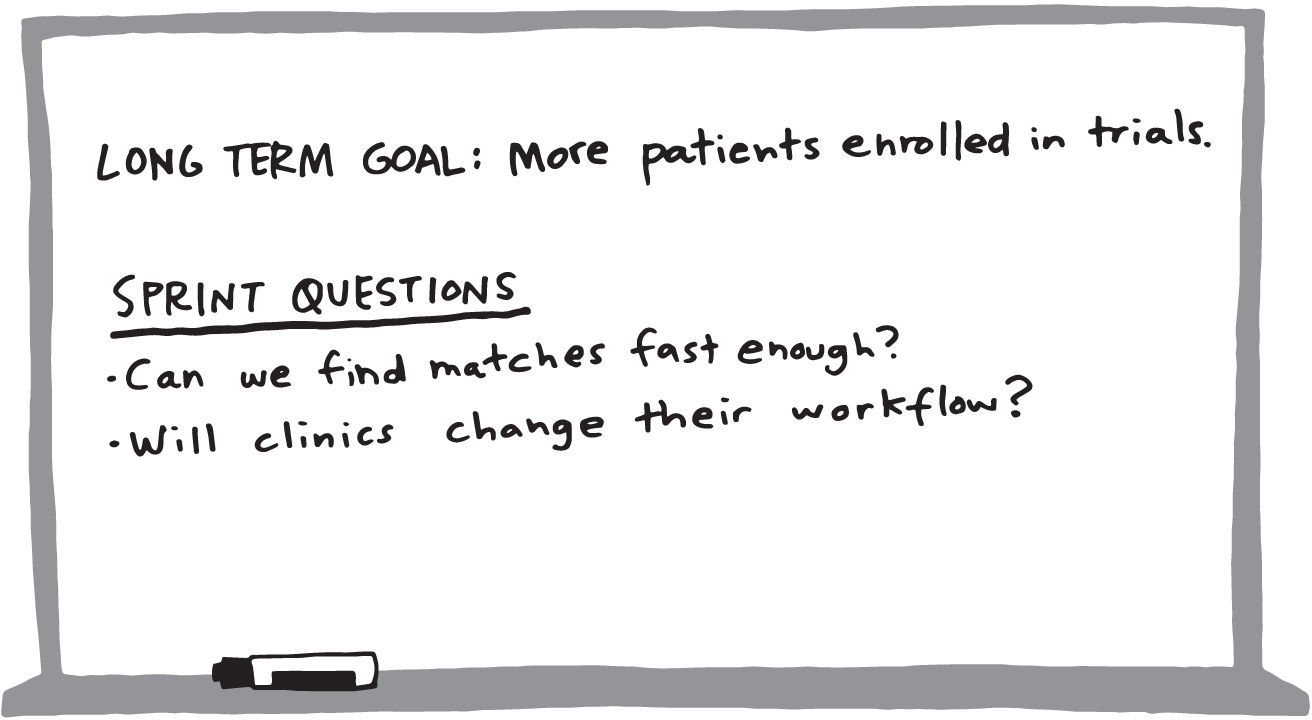 LONG TERM GOAL: More patients enrolled in trials.
SPRINT QUESTIONS
· Can we find matches fast enough?
· Will clinics change their workflow?